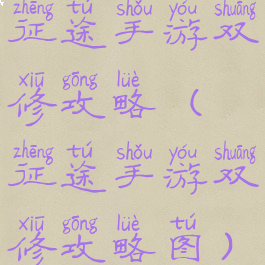 zhēng tú shǒu yóu shuāng
征途手游双
xiū gōng lüè
修攻略（
zhēng tú shǒu yóu shuāng
征途手游双
xiū gōng lüè tú
修攻略图）